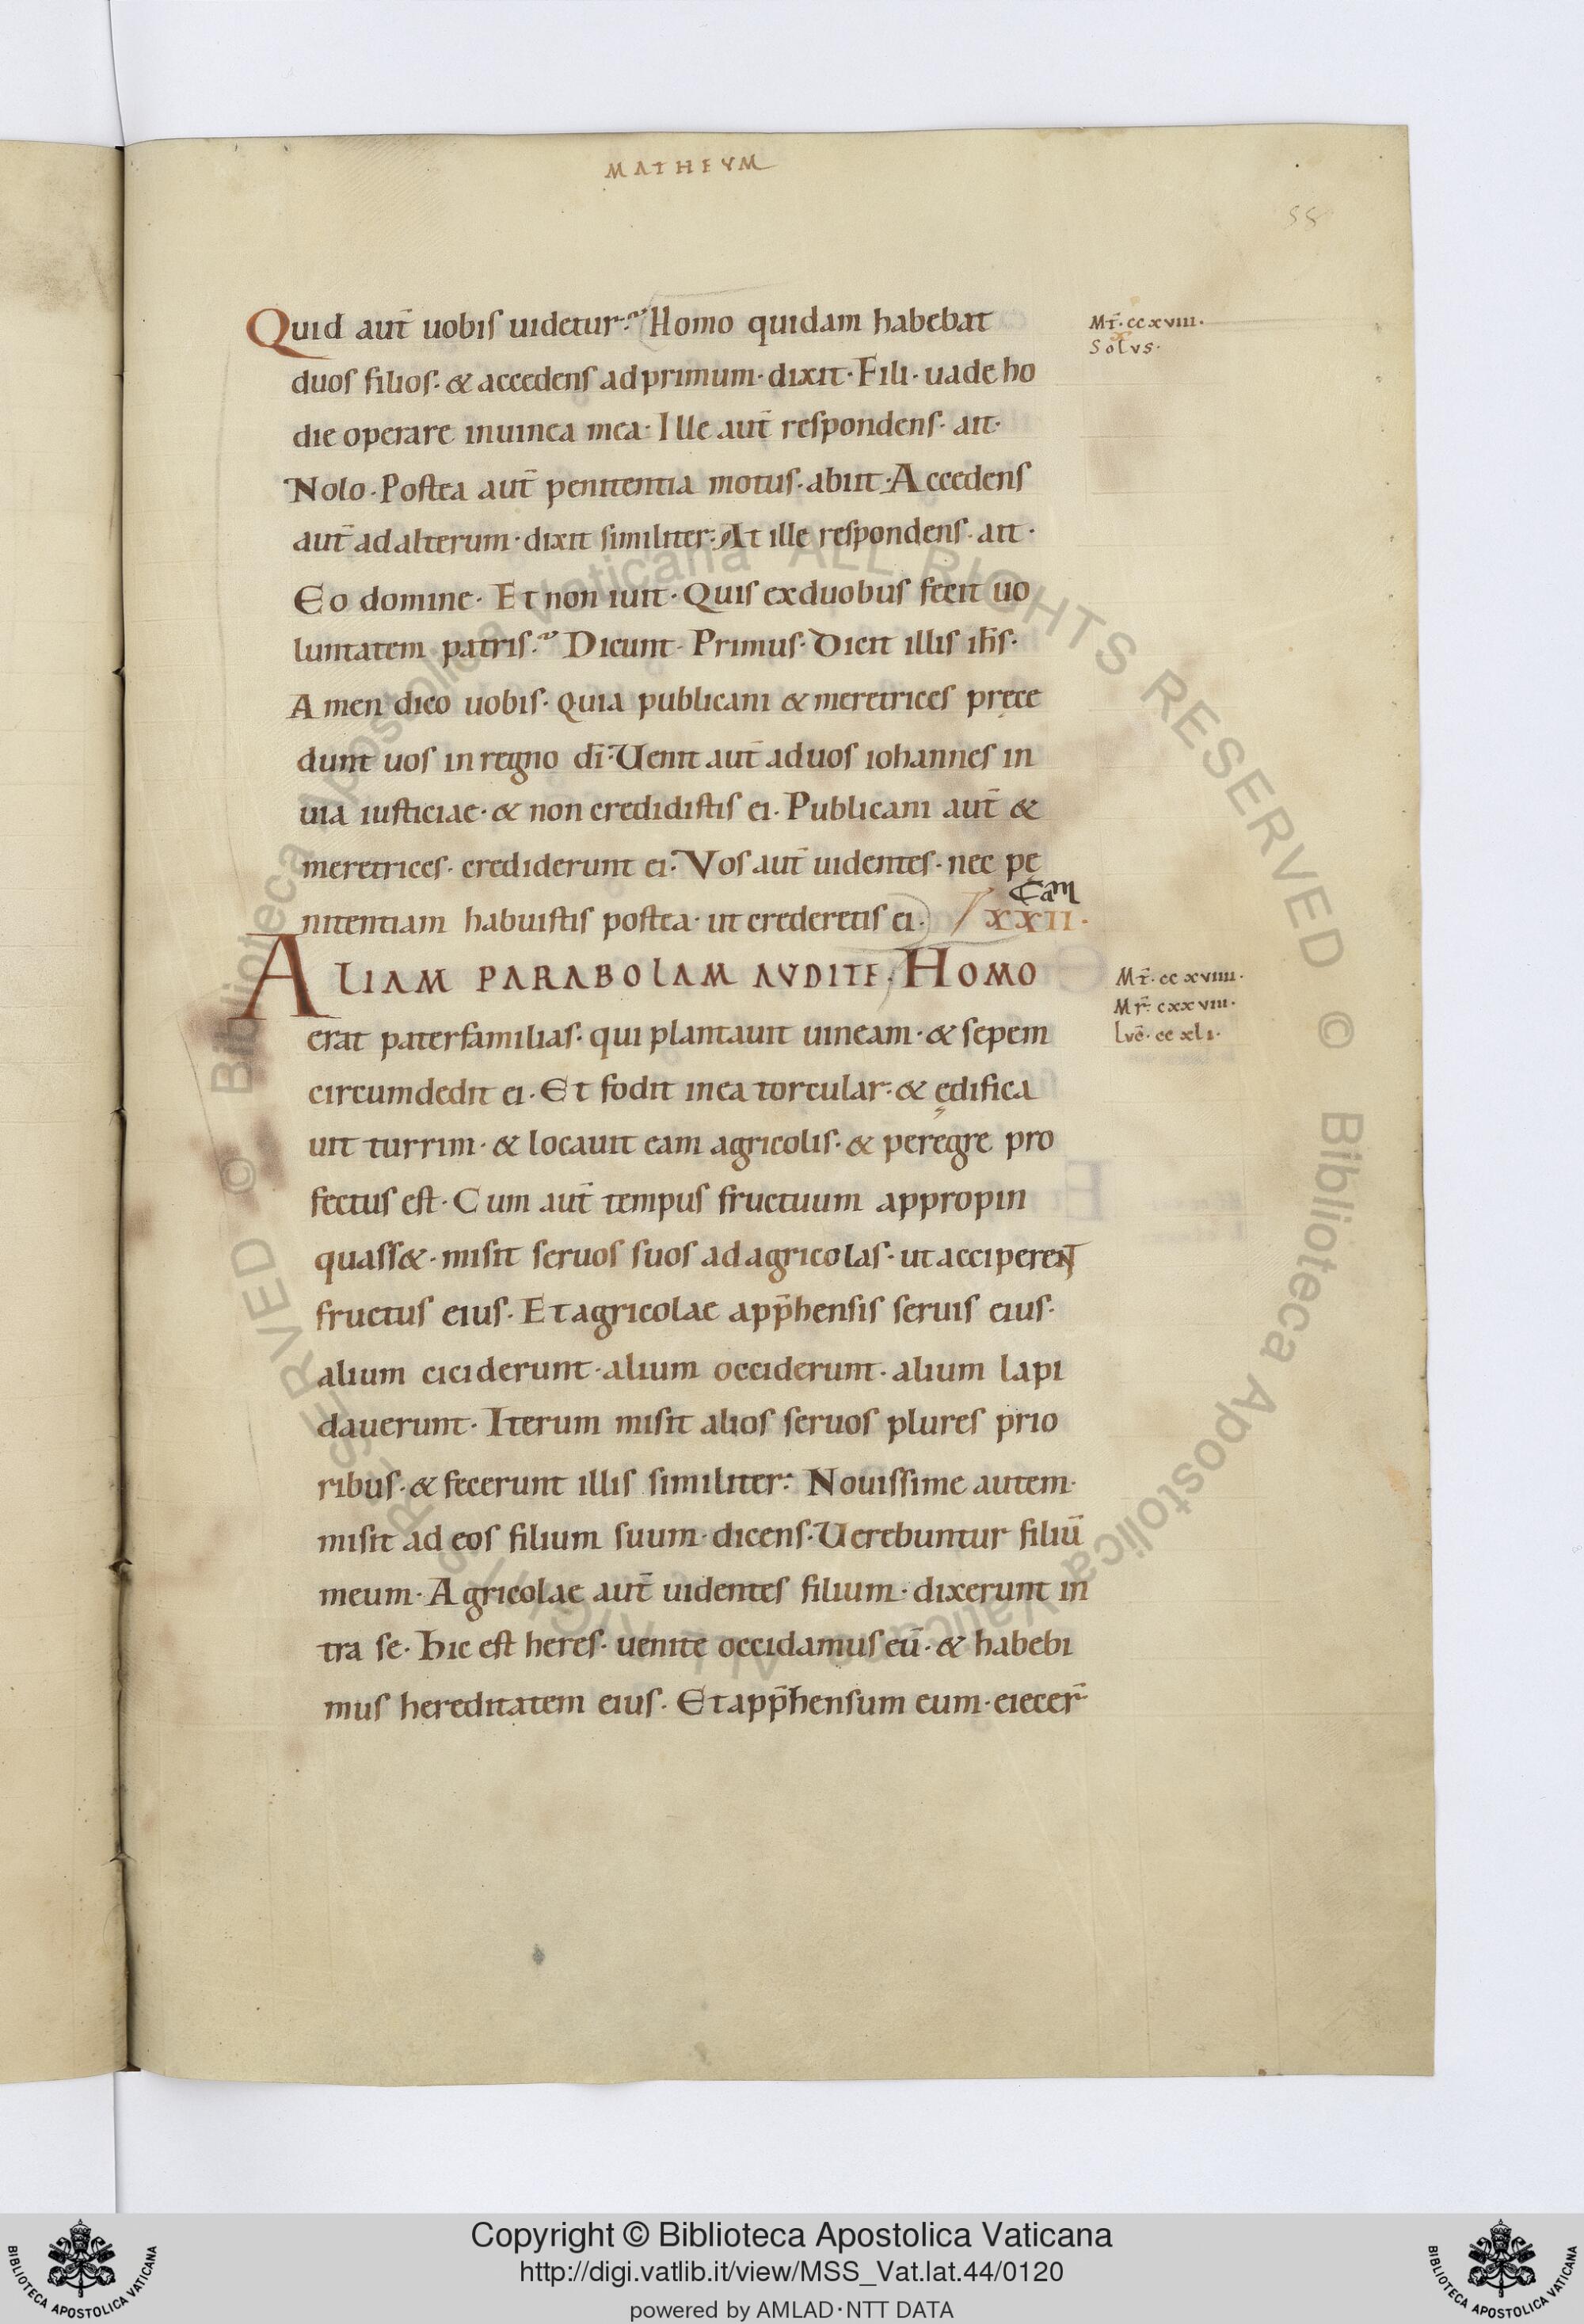 MATHEVM
55
Quid aut̄ uobis uidetur? Homo quidam habebat
Mt̄·ccxviii·
Solvs·
duos filios· & accedens ad primum· dixit· Fili· uade ho
die operare in uinea mea· Ille aut̄ respondens· ait·
Nolo· Postea aut̄ penitentia motus· abiit· Accedens
aut̄ ad alterum· dixit similiter· At ille respondens· ait·
Eo domine· Et non iuit· Quis ex duobus fecit uo
luntatem patris? Dicunt· Primus· Dicit illis ih̄s·
Amen dico uobis· quia publicani & meretrices pręce
dunt uos in regno dī· Uenit aut̄ ad uos iohannes in
uia iusticiae· & non credidistis ei· Publicani aut̄ &
meretrices· crediderunt ei· Vos aut̄ uidentes· nec pę
nitentiam habuistis postea· ut crederetis ei· / XXII·
Cam
ALIAM PARABOLAM AVDITE· HOMO
Mt̄·ccxviiii·
Mr̄·cxxviii·
Lvc̄·ccxli·
erat paterfamilias· qui plantauit uineam· & sepem
circumdedit ei· Et fodit in ea torcular· & ędifica
uit turrim· & locauit eam agricolis· & peregre pro
fectus est· Cum aut̄ tempus fructuum appropin
quass&· misit seruos suos ad agricolas· ut acciperent
fructus eius· Et agricolae app̄hensis seruis eius·
alium ciciderunt· alium occiderunt· alium lapi
dauerunt· Iterum misit alios seruos plures prio
ribus· & fecerunt illis similiter· Nouissime autem·
misit ad eos filium suum· dicens· Uerebuntur filiū
meum· Agricolae aut̄ uidentes filium· dixerunt in
tra se· Hic est heres· uenite occidamus eū· & habebi
mus hereditatem eius· Et app̄hensum eum· eiecer̄
© Biblioteca Apostolica Vaticana ALL RIGHTS RESERVED © Biblioteca Apostolica Vaticana ALL RIGHTS RESERVED
Copyright © Biblioteca Apostolica Vaticana
http://digi.vatlib.it/view/MSS_Vat.lat.44/0120
powered by AMLAD·NTT DATA
BIBLIOTECA APOSTOLICA VATICANA
BIBLIOTECA APOSTOLICA VATICANA